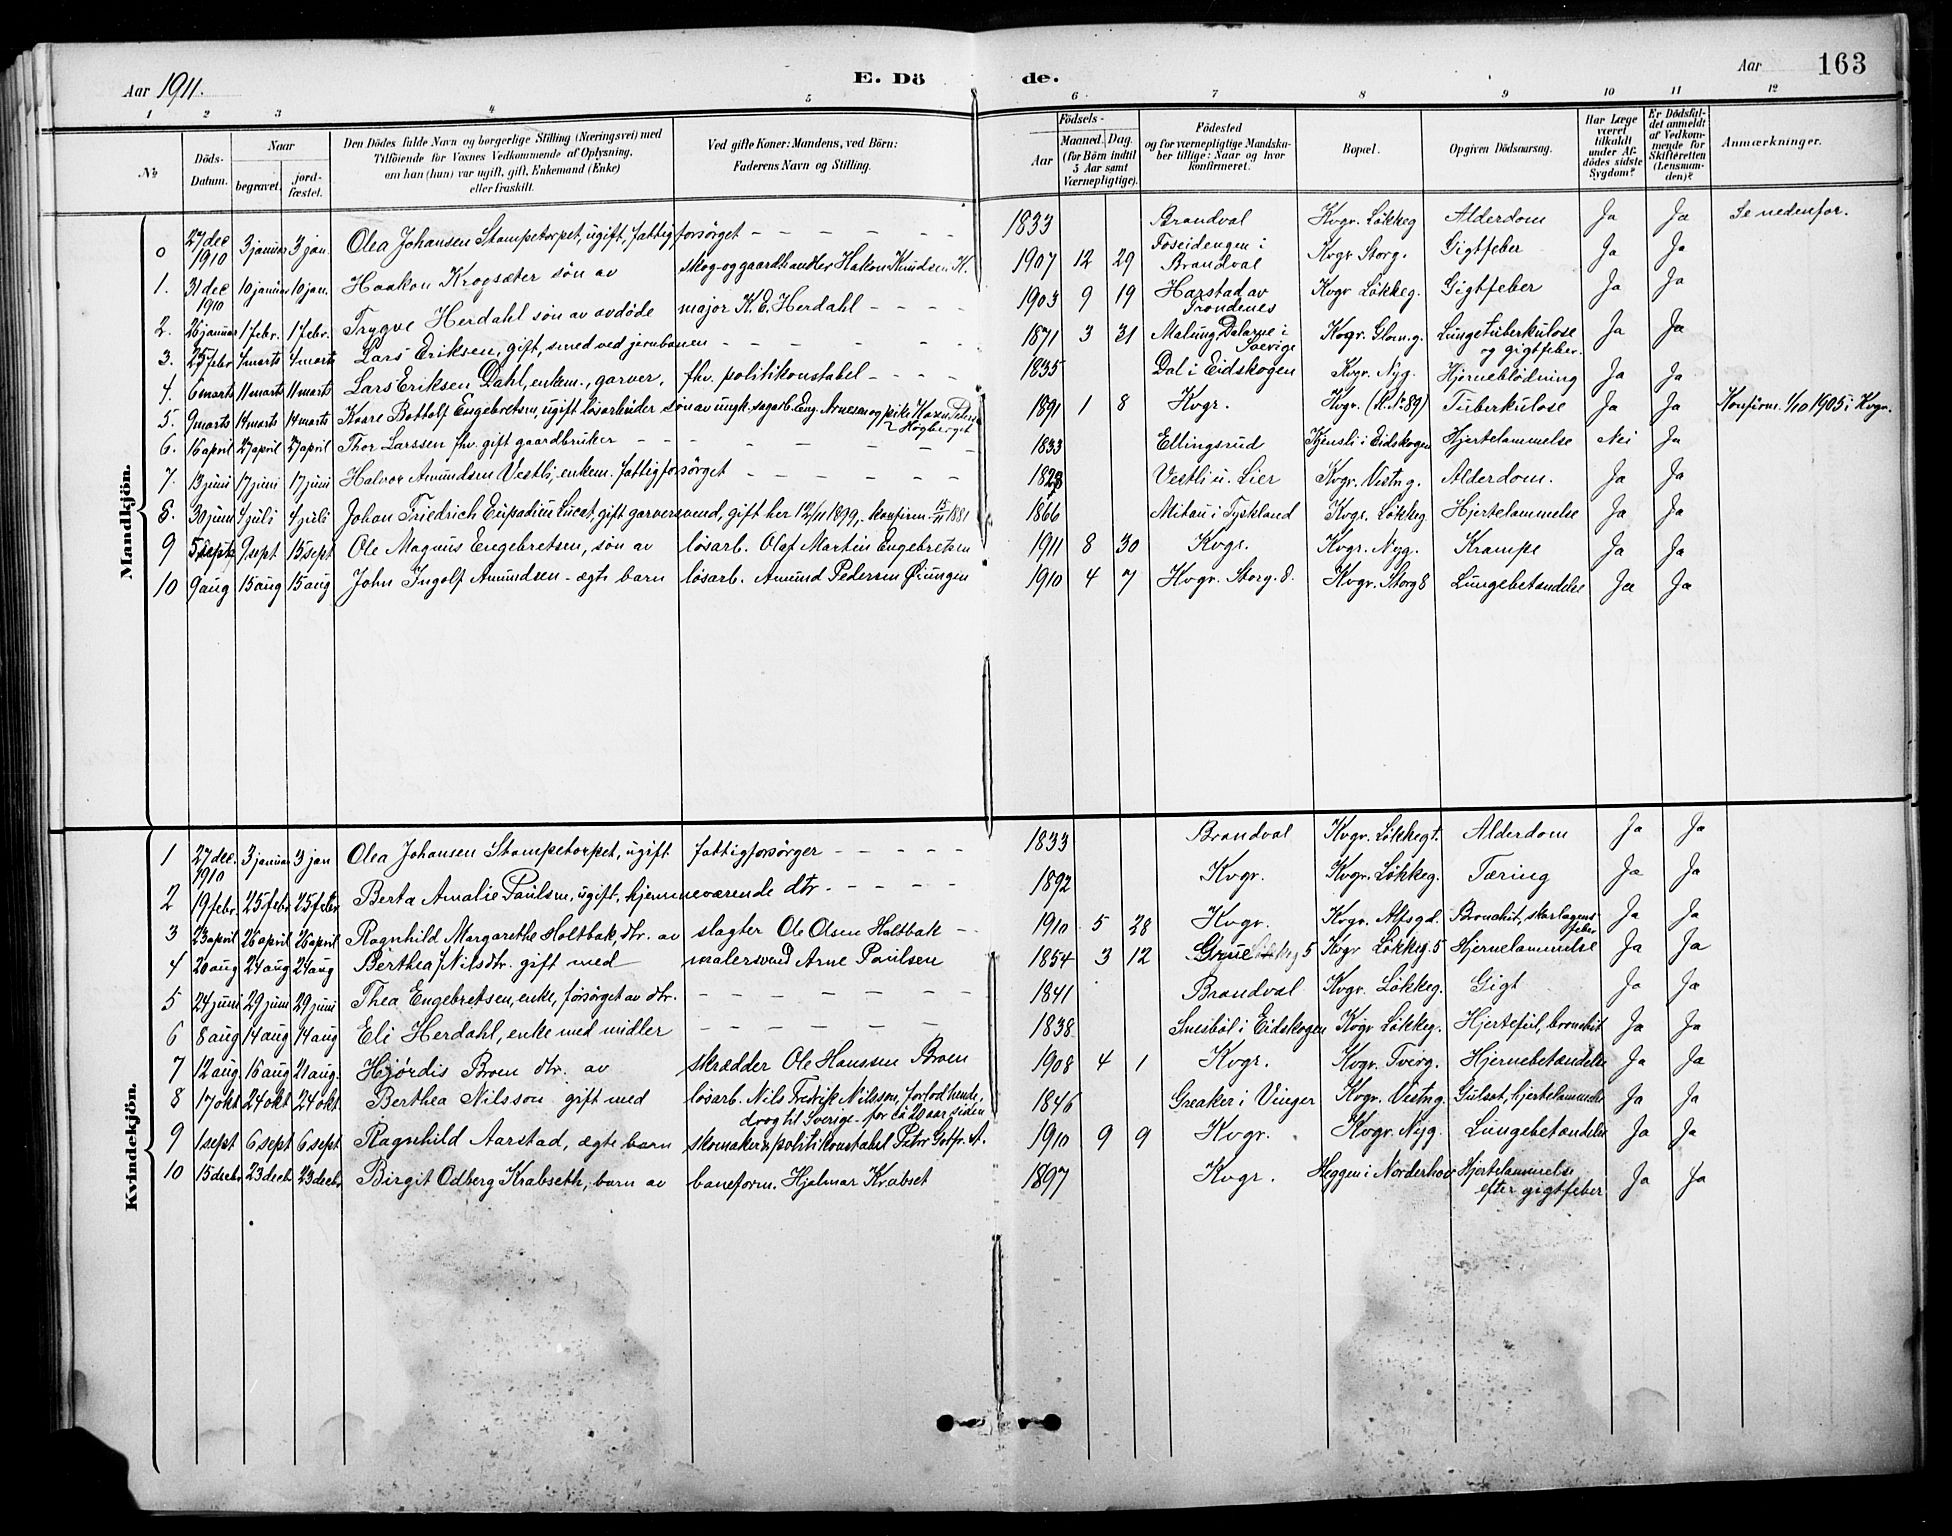 Aar 1911. E. Dö de. Aar 163
1 2 3 4 5 6 7 8 9 10 11 12
№ Döds-Datum. Naar begravet. jord-fæstet. Den Dödes fulde Navn og borgerlige Stilling (Næringsvei) med Tilföiende for Voxnes Vedkommende af Oplysning, om han (hun) var ugift, gift, Enkemand (Enke) eller fraskilt. Ved gifte Koner: Mandens, ved Börn: Faderens Navn og Stilling. Födsels- Aar Maaned. Dag. (for Börn indtil 5 Aar samt Værnepligtige). Födested og for værnepligtige Mandskaber tillige: Naar og hvor konfirmeret. Bopæl. Opgiven Dödsaarsag. Har Læge været tilkaldt under Afdödes sidste Sygdom? Er Dödsfaldet anmeldt af Vedkommende for Skifteretten (Lensmanden)? Anmærkninger.
Mandkjön.
0 27 dec 1910 3 januar 3 jan. Olea Johansen Stampetorpet, ugift, fattigforsørget — — — — — 1833 Brandval Kvgr. Løkkeg Alderdom Ja Ja Se nedenfor.
1. 31 dec 1910 10 januar 10 jan. Haakon Krogsæter søn av skog- og gaardhandler Hakon Knudsen K. 1907 12 29 Føseidengen i Brandval Kvgr Storg. Gigtfeber Ja Ja
2. 26 januar 1 febr. 1 febr. Trygve Herdahl søn av avdøde major K. E. Herdahl — — — 1903 9 19 Harstad av Trondenes Kvgr Løkkeg. Gigtfeber Ja Ja
3. 25 febr 4 marts 4 marts Lars Eriksen, gift, smed ved jernbanen — — — — — 1871 3 31 Malung Dalarne i Sverige Kvgr. Glom.g. Lungetuberkulose og gigtfeber. Ja Ja
4. 6 marts 11 marts 11 marts Lars Eriksen Dahl, enkem., garver, fhv. politikonstabel — — — 1835 Dal i Eidskogen Kvgr. Nyg. Hjerneblødning Ja Ja
5. 9 marts 14 marts 14 marts Kaare Bottolf Engebretsen, ugift løsarbeider søn av ungk. sagarb. Eng. Arnesen og pike Karen Peders Høgberget 1891 1 8 Kvgr. Kvgr. (K. № 89) Tuberkulose Ja Ja Konfirm. 1/10 1905 i Kvgr.
6. 16 april 27 april 27 april Thor Larssen fhv. gift gaardbruker — — — — — — 1833 Ellingsrud Kjensli i Eidskogen Hjertelammelse Nei Ja
7. 13 juni 17 juni 17 juni Halvor Amundsen Vestli, enkem. fattigforsørget — — — — — 1828 Vestli u. Lier Kvgr. Vestng. Alderdom. Ja Ja
8. 30 juni 4 juli 4 juli Johan Friedrich Lucat, gift garversvend, gift her 12/11 1899, konfirm 15/11 1881 1866 Mitau i Tyskland Kvgr. Løkkeg Hjertelammelse Ja Ja
9 5 septb 9 sept 15 sept Ole Magnus Engebretsen, søn av løsarb. Olaf Martin Engebretsen 1911 8 30 Kvgr. Kvgr. Nyg. Krampe Ja Ja
10 9 aug 15 aug 15 aug John Ingolf Amundsen - ægte barn løsarb. Amund Pedersen Øiungen 1910 4 7 Kvgr. Storg. 8. Kvgr. Storg 8 Lungebetændelse Ja Ja
Kvindekjön.
1 27 dec. 1910 3 januar 3 jan Olea Johansen Stampetorpet, ugift fattigforsörger — — — — — 1833 Brandval Kvgr. Løkkegt. Alderdom Ja Ja
2 19 febr. 25 febr 25 febr Berta Amalie Paulsen, ugift, hjemmeværende dtr. — — — — 1892 Kvgr. Kvgr. Løkkeg. Tæring Ja Ja
3 23 april 26 april 26 april Ragnhild Margarethe Holtbak, dtr. av slagter Ole Olsen Holtbak — 1910 5 28 Kvgr. Kvgr. Alfsgd. Bronchit, skarlagensfeber Ja Ja
4 20 aug 24 aug 24 aug Berthea Nilsdtr. gift med malersvend Arne Paulsen 1854 3 12 Grue Kvgr Løkkeg. 5 Hjernelammelse Ja Ja
5 24 juni 29 juni 29 juni Thea Engebretsen, enke, forsørget av dtr. — — — — — — 1841 Brandval Kvgr. Løkkeg. Gigt Ja Ja
6 8 aug 14 aug 14 aug Eli Herdahl, enke med midler — — — — — — 1838 Snesbøl i Eidskogen Kvgr Løkkeg. Hjertefeil, bronchit Ja Ja
7 12 aug. 16 aug 21 aug. Hjørdis Broen dtr. av skrædder Ole Hanssen Broen 1908 4 1 Kvgr. Kvgr. Tverg. Hjernebetændelse Ja Ja
8 17 okt 24 okt. 24 okt. Berthea Nilsson gift med løsarb. Nils Fredrik Nilsson, forlod hende, drog til Sverige for ca 20 aar siden 1846 Greaker i Vinger Kvgr. Vestng. Gulsot, hjertelammelse Ja Ja
9 1 sept 6 sept 6 sept Ragnhild Aarstad, ægte barn skomaker politikonstabel Petr. Gotfr. A. 1910 9 9 Kvgr. Kvgr. Nyg. Lungebetændelse Ja Ja
10 15 decbr 23 decb 23 decbr Birgit Odberg Krabseth, barn av baneform. Hjalmar Krabset 1897 Kvgr. Heggen i Norderhov Hjertelammelse efter gigtfeber Ja Ja